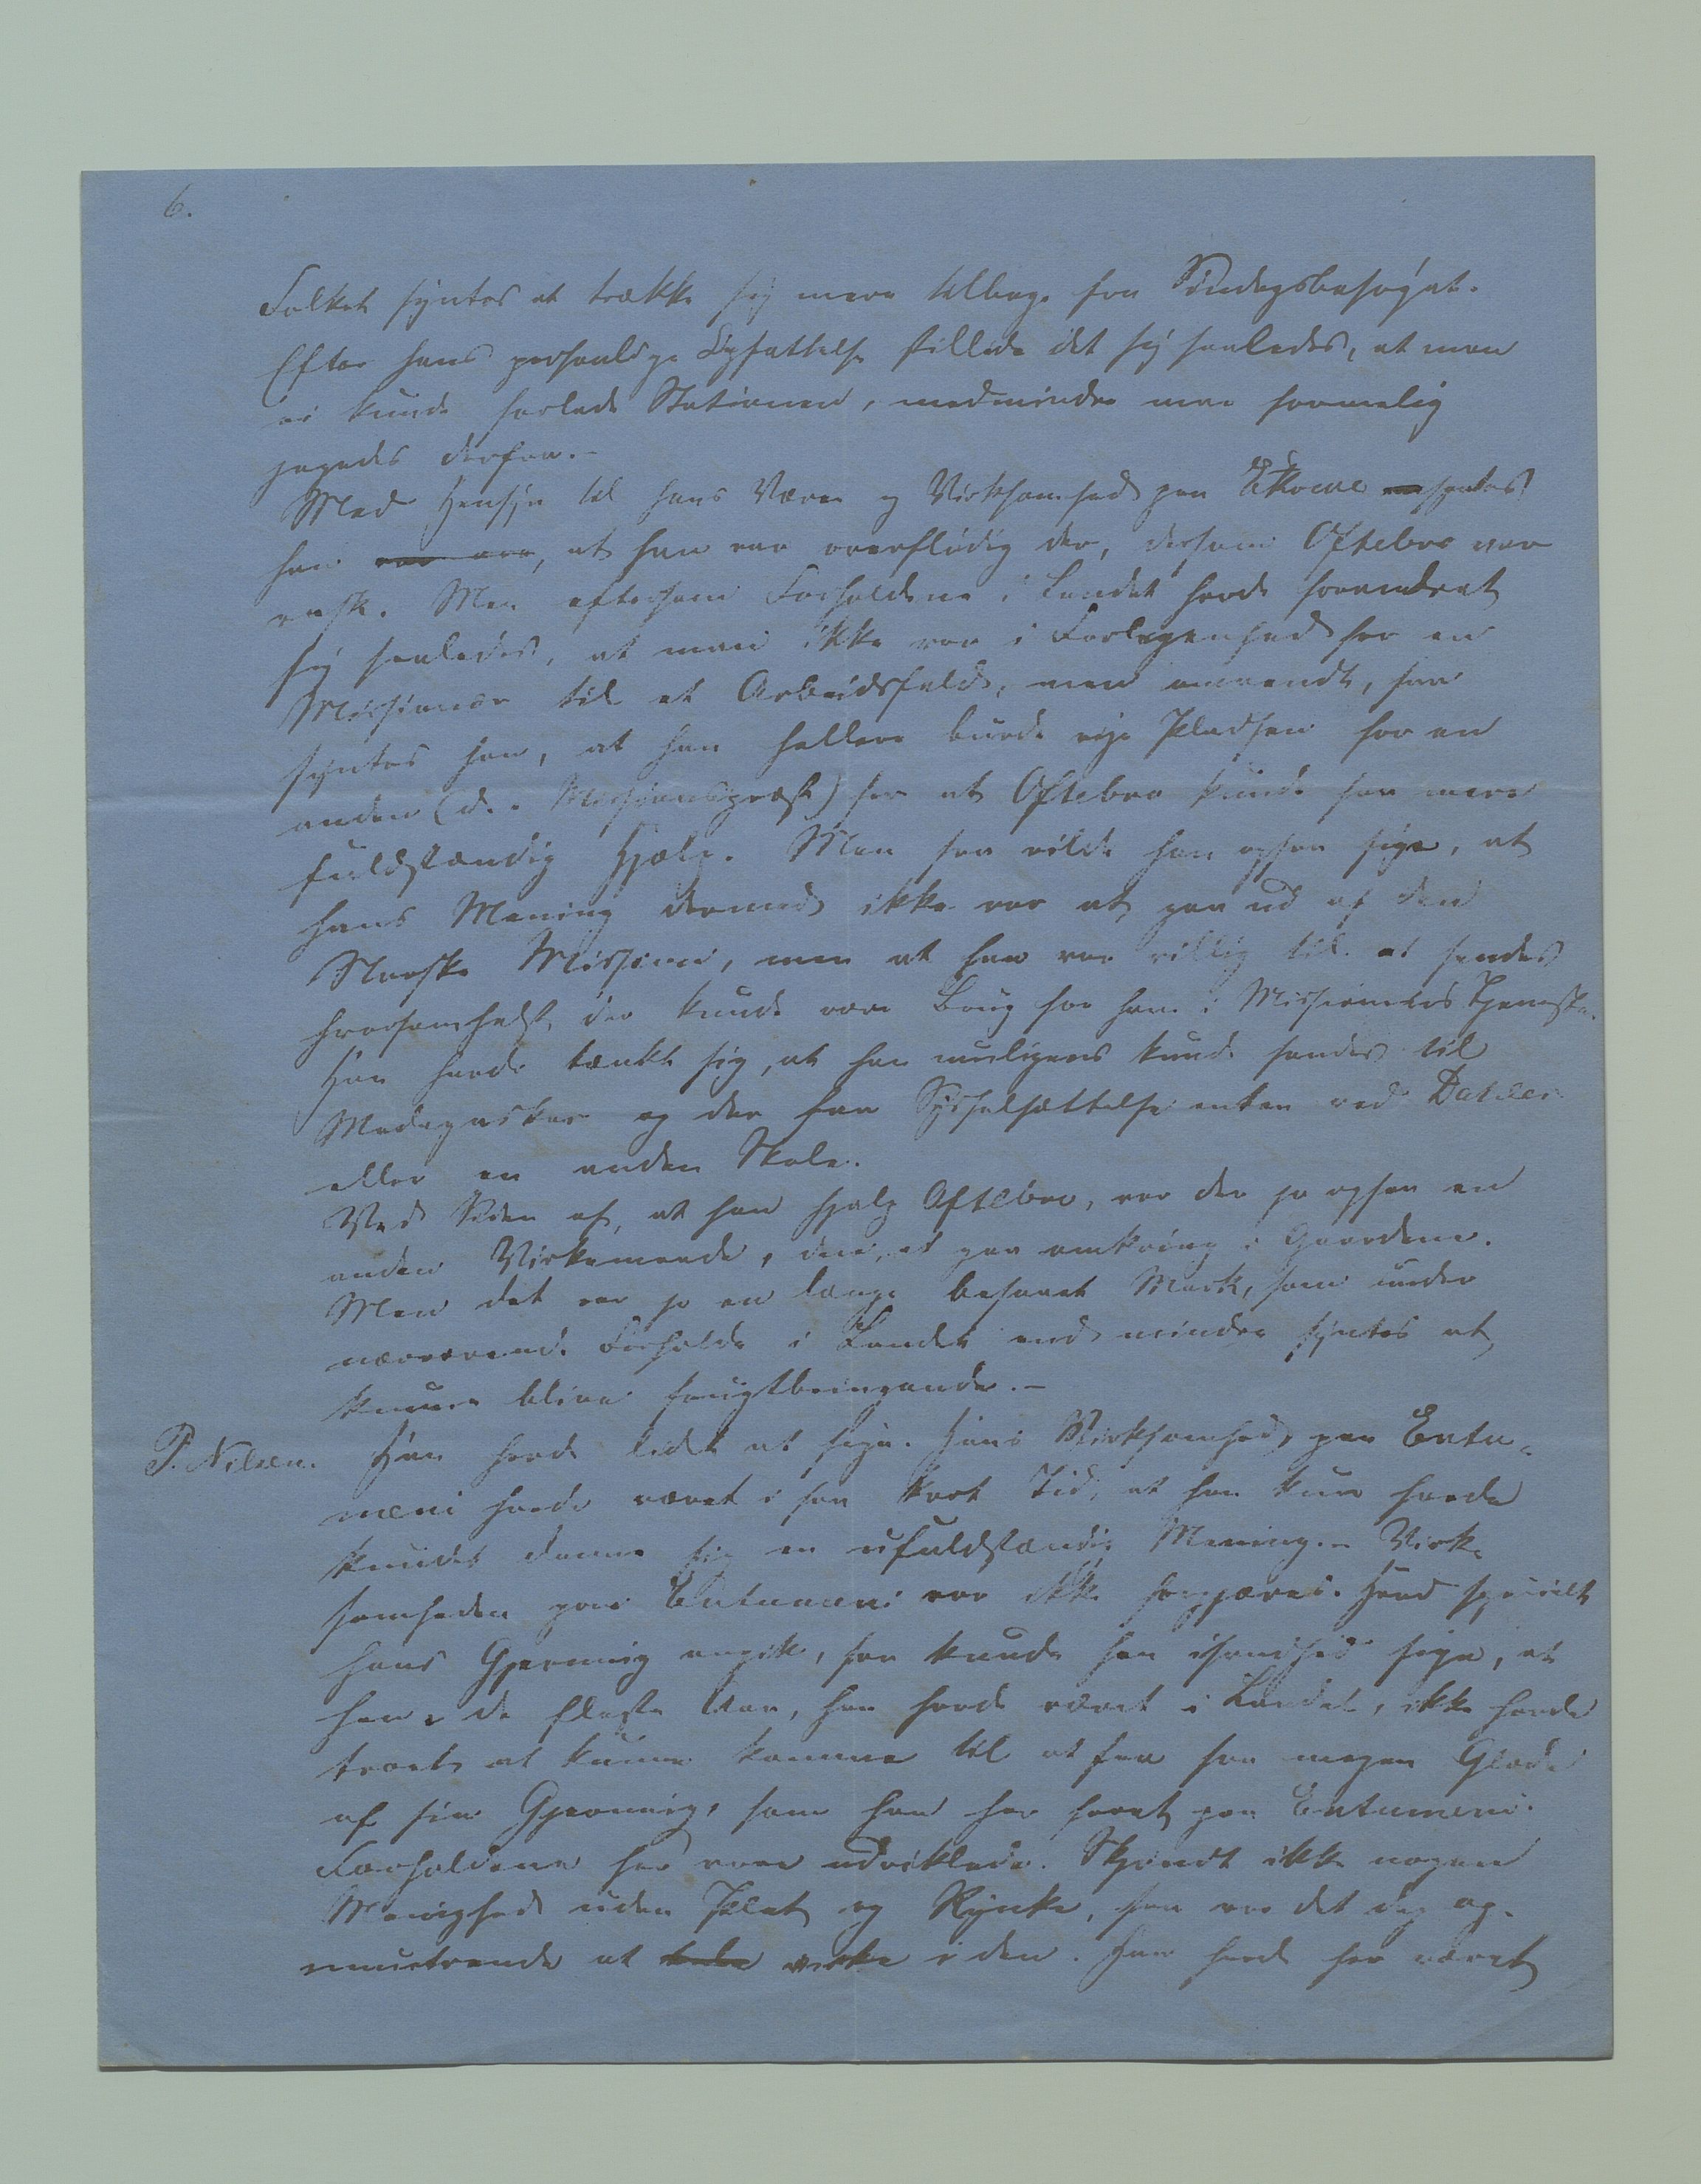 6.
Folket syntes at trække sig mere tilbage fra Søndagsbesøget.
Efter hans personlige Opfattelse stillede det sig saaledes, at man
ei kunde forlade Stationen, medmindre man formelig
jagedes derfra.-
Med Hensyn til hans Væren og Virksomhed paa Ekowe syntes
han, at han var overflødig der, dersom Oftebro var
rask. Men eftersom Forholdene i Landet havde forandret
sig saaledes, at man ikke var i Forlegenhed for en
Missionær til et Arbeidsfeld, men omvendt, saa
syntes han, at han hellere burde vige Pladsen for en
anden (d. e. Missionspræst) for at Oftebro kunde faa mere
fuldstændig Hjælp. Men saa vilde han ogsaa sige, at
hans Mening dermed ikke var at gaa ud af den
Norske Mission, men at han var villig til at sendes
hvorsomhelst der kunde være Brug for ham i Missionens Tjeneste.
Han havde tænkt sig, at han muligens kunde sendes til
Madagaskar og der faa Sysselsættelse enten ved Dahles
eller en anden Skole.
Ved Siden af, at han hjalp Oftebro, var der jo ogsaa en
anden Virkemaade, den, at gaa omkring i Gaardene.
Men det var jo en længe besaaet Mark, som under
nærværende Forholde i Landet end mindre syntes at
kunne blive frugtbringende.-
P. Nilsen. Han havde lidet at sige. Hans Virksomhed paa Entu-
meni havde været i saa kort Tid, at han kun havde
kundet danne sig en ufuldstændig Mening.- Virk-
somheden paa Entumeni var ikke forgjæves. Hvad specielt
hans Gjerning angik, saa kunde han isandhed sige, at
han de fleste Aar, han havde været i Landet, ikke havde
troet at kunne komme til at faa saa megen Glæde
af sin Gjerning, som han har havt paa Entumeni.
Forholdene her vare udviklede. Skjøndt ikke nogen
Menighed uden Plet og Rynke, saa var det dog op-
muntrende at virke i den. Han havde her været